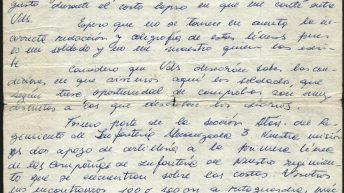 gusto durante el corto espacio en que me carteé entre
Uds.
Espero que no se tomen en cuenta la in-
correcta redacción y caligrafía de estas líneas pues
es un soldado y no un maestro quien las escri-
be.
Considero que Uds desearían saber las con-
diciones en que vivimos aquí los soldados, que
según tuve oportunidad de comprobar son muy
distintas a las que describen los diarios.
Formo parte de la sección del Re-
gimiento de Infantería Mecanizada 3 Nuestra misión
es dar apoyo de artillería a la primera línea
de las compañías de infantería de nuestro regimiento
que se encuentran sobre las costas Nosotros
nos encontramos a retaguardia,